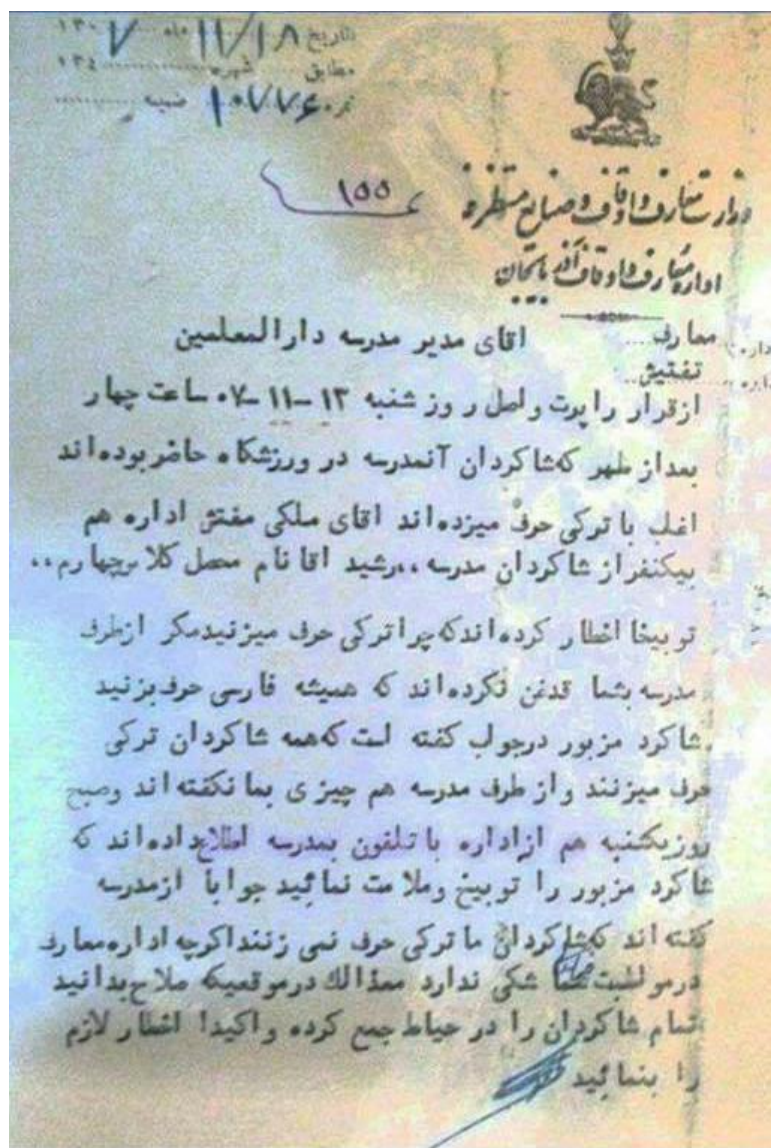 تاریخ ۱۱/۱۸ ماه ۱۳۰۷
مطابق شهر ۱۳۴
نمره ۱۰۷۷۶ ضمیمه
۱۵۵
وزارت معارف و اوقاف و صنایع مستظرفه
اداره معارف و اوقاف آذربایجان
معارف اقای مدیر مدرسه دارالمعلمین
تفتیش
ازقرار راپورت واصل روز شنبه ۱۳-۱۱-۰۷ ساعت چهار
بعداز ظهر که شاکردان آنمدرسه در ورزشگاه حاضر بوده اند
اغلب با ترکی حرف میزده اند اقای ملکی مفتش اداره هم
بیکنفر از شاکردان مدرسه ,,رشید اقا نام محصل کلاس چهارم,,
توبیخا اخطار کرده اند که چرا ترکی حرف میزنید مکر ازطرف
مدرسه بشما قدغن نکرده اند که همیشه فارسی حرف بزنید
شاکرد مزبور درجواب کفته است که همه شاکردان ترکی
حرف میزنند و از طرف مدرسه هم چیزی بما نکفته اند وصبح
روزیکشنبه هم ازاداره با تلفون بمدرسه اطلاع داده اند که
شاکرد مزبور را توبیخ وملامت نمائید جوابا ازمدرسه
کفته اند که شاکردان ما ترکی حرف نمی زنند اکرچه اداره معارف
درمواظبت شما شکی ندارد معذالك درموقعیکه صلاح بدانید
تمام شاکردان را در حیاط جمع کرده واکیدا اخطار لازم
را بنمائید